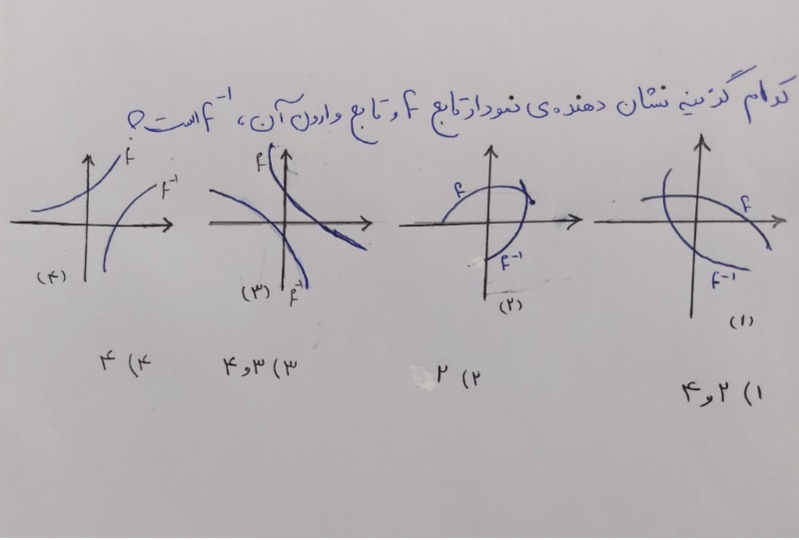 کدام گزینه نشان دهنده‌ی نمودار تابع f و تابع وارون آن، f⁻¹ است؟
f
f⁻¹
(۱)
f
f⁻¹
(۲)
f
f⁻¹
(۳)
f
f⁻¹
(۴)
۱) ۲ و ۴
۲) ۲
۳) ۳ و ۴
۴) ۴